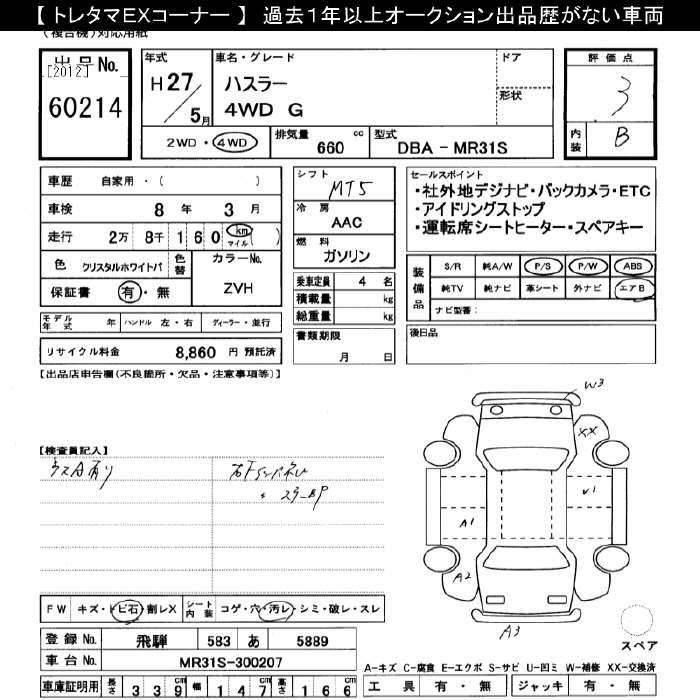 【トレタマEXコーナー】 過去1年以上オークション出品歴がない車両
(複合機)対応用紙
出品No.
[2012]
60214
年式
H27/5月
車名・グレード
ハスラー
4WD G
ドア
形状
2WD・4WD
排気量 660 cc
型式 DBA - MR31S
評価点
3
内装 B
車歴 自家用・( )
車検 8年 3月
走行 2万 8千 160 km マイル ( )
色 クリスタルホワイトパ
色替
カラーNo.
ZVH
保証書 有・無
シフト
MT5
冷房
AAC
燃料
ガソリン
乗車定員 4 名
積載量 kg
総重量 kg
書類期限
月 日
セールスポイント
・社外地デジナビ・バックカメラ・ETC
・アイドリングストップ
・運転席シートヒーター・スペアキー
装備品
S/R 純A/W P/S P/W ABS
純TV 純ナビ 革シート 外ナビ エアB
ナビ型番:
後日品
モデル年式 年 ハンドル 左・右 ディーラー・並行
リサイクル料金 8,860 円 預託済
【出品店申告欄(不良箇所・欠品・注意事項等)】
【検査員記入】
ウスA有り
W3
XX
A1
A2
A3
FW キズ・トビ石・割レX
シート内装 コゲ・穴・汚レ・シミ・破レ・スレ
登録No. 飛騨 583 あ 5889
車台No. MR31S-300207
車庫証明用 長さ 339cm 幅 147cm 高さ 166cm
スペア
A-キズ C-腐食 E-エクボ S-サビ U-凹ミ W-補修 XX-交換済
工具 有・無 ジャッキ 有・無